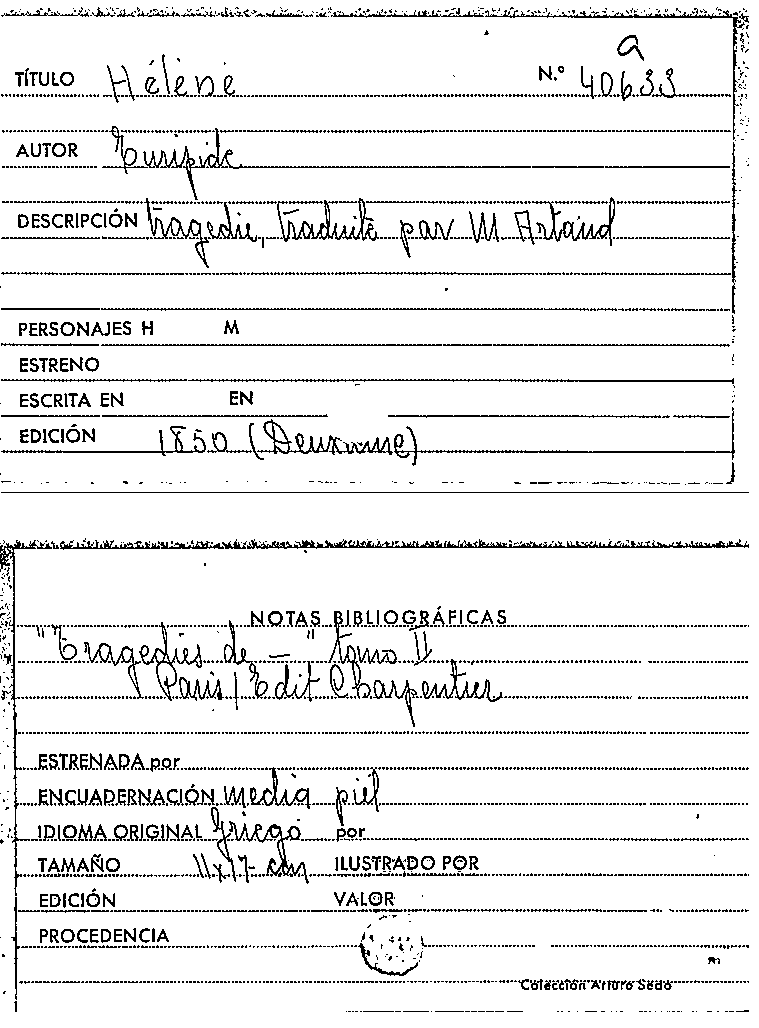 a
TÍTULO Hélène N.º 40633
AUTOR Euripide
DESCRIPCIÓN tragedie, traduite par M Artaud
PERSONAJES H M
ESTRENO
ESCRITA EN EN
EDICIÓN 1850 (Deuxieme)
NOTAS BIBLIOGRÁFICAS
"Tragedies de — " tomo II
Paris / Edit Charpentier
ESTRENADA por
ENCUADERNACIÓN media piel
IDIOMA ORIGINAL Griego por
TAMAÑO 11x17 cm ILUSTRADO POR
EDICIÓN VALOR
PROCEDENCIA
Colección Arturo Sedó